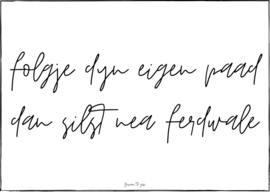 folgje dyn eigen paad
dan silst nea ferdwale